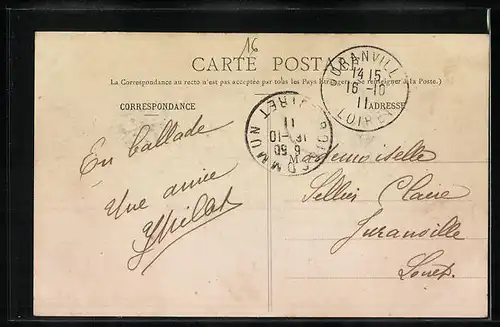 16
CARTE POSTALE
(La Correspondance au recto n'est pas acceptée par tous les Pays Étrangers. Se renseigner à la Poste.)
CORRESPONDANCE
ADRESSE
JURANVILLE
14 15
16 -10
11
LOIRET
BOISCOMMUN
LOIRET
6 50
16 -10
11
En ballade
Une amie
M
Mademoiselle
Claire
Juranville
Loiret